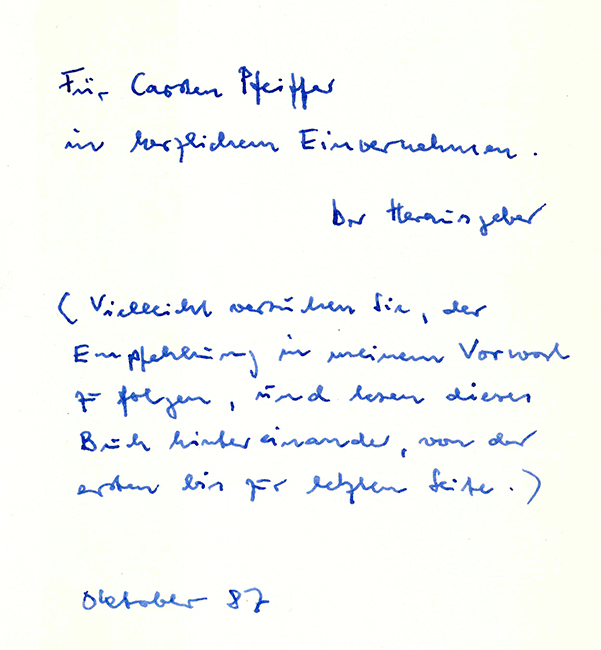 Für Carsten Pfeiffer
in herzlichem Einvernehmen.
Der Herausgeber
(Vielleicht versuchen Sie, der
Empfehlung in meinem Vorwort
zu folgen, und lesen dieses
Buch hintereinander, von der
ersten bis zur letzten Seite.)
Oktober 87